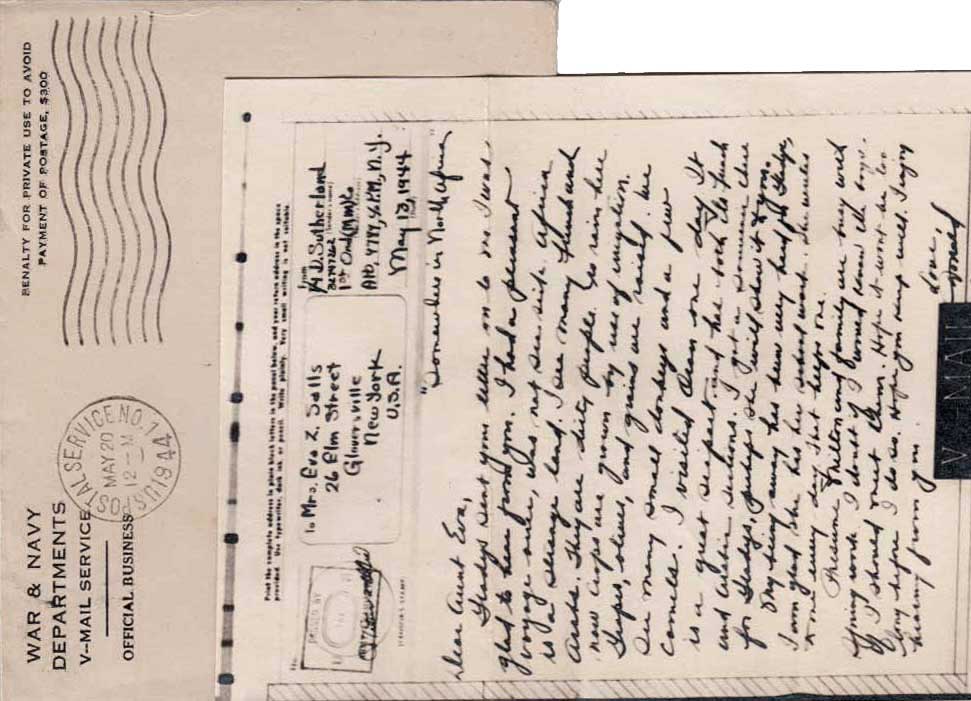 WAR & NAVY
DEPARTMENTS
V-MAIL SERVICE
OFFICIAL BUSINESS
U.S. POSTAL SERVICE NO.
MAY 20
12-M
1944
PENALTY FOR PRIVATE USE TO AVOID
PAYMENT OF POSTAGE, $300
Print the complete address in plain block letters in the panel below, and your return address in the space
provided. Use typewriter, dark ink or pencil. Write plainly. Very small writing is not suitable.
No.
PASSED BY
CENSOR'S STAMP
To Mrs. Eva Z. Salls
26 Elm Street
Gloversville
New York
U.S.A.
From
D. Sutherland
(Sender's name)
1st Ord (MM) Co
APO, 4784, % P.M., N.Y.
May 13, 1944
"Somewhere in North Africa"
Dear Aunt Eva,
Gladys sent your letter on to me. I was
glad to hear from you. I had a pleasant
voyage over, was not sea sick. Africa
is a strange land. I see many French and
Arabs. They are dirty people. No rain here
now crops are grown by use of irrigation.
Grapes, olives, and grains are raised. We
see many small donkeys and a few
camels. I visited one day. It
is a great seaport and has both the French
and Arabic sections. I got a souvenir there
for Gladys, perhaps she will show it to you.
My being away has been very hard for Gladys,
I am glad she has her school work. She writes
to me every day that helps me.
Presume Milton and family are busy with
spring work. I doubt if I would know the boys
if I should meet them. Hope it wont be too
long before I do so. Hope you keep well. I enjoy
hearing from you.
Love,
Donald
V-MAIL